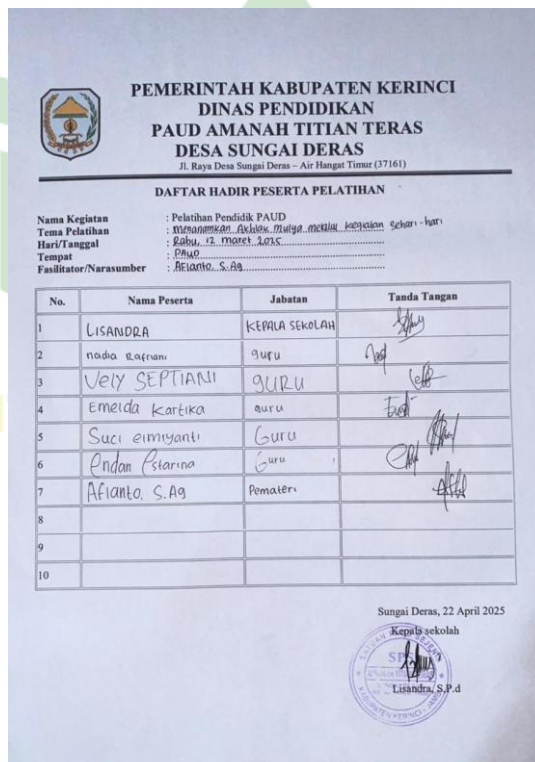 PEMERINTAH KABUPATEN KERINCI
DINAS PENDIDIKAN
PAUD AMANAH TITIAN TERAS
DESA SUNGAI DERAS
Jl. Raya Desa Sungai Deras – Air Hangat Timur (37161)
DAFTAR HADIR PESERTA PELATIHAN
Nama Kegiatan : Pelatihan Pendidik PAUD
Tema Pelatihan : menanamkan Akhlak mulya melalui kegiatan sehari-hari
Hari/Tanggal : Rabu, 12 maret 2025
Tempat : PAUD
Fasilitator/Narasumber : AFianto, S.Ag
No. Nama Peserta Jabatan Tanda Tangan
1 LISANDRA KEPALA SEKOLAH
2 nadia Rafriani guru
3 Vely SEPTIANI GURU
4 Emelda Kartika guru
5 Suci elmiyanti Guru
6 Endan Estarina Guru
7 Afianto, S.Ag Pemateri
8
9
10
Sungai Deras, 22 April 2025
Kepala sekolah
SPS
KABUPATEN KERINCI - JAMBI
Lisandra, S.P.d